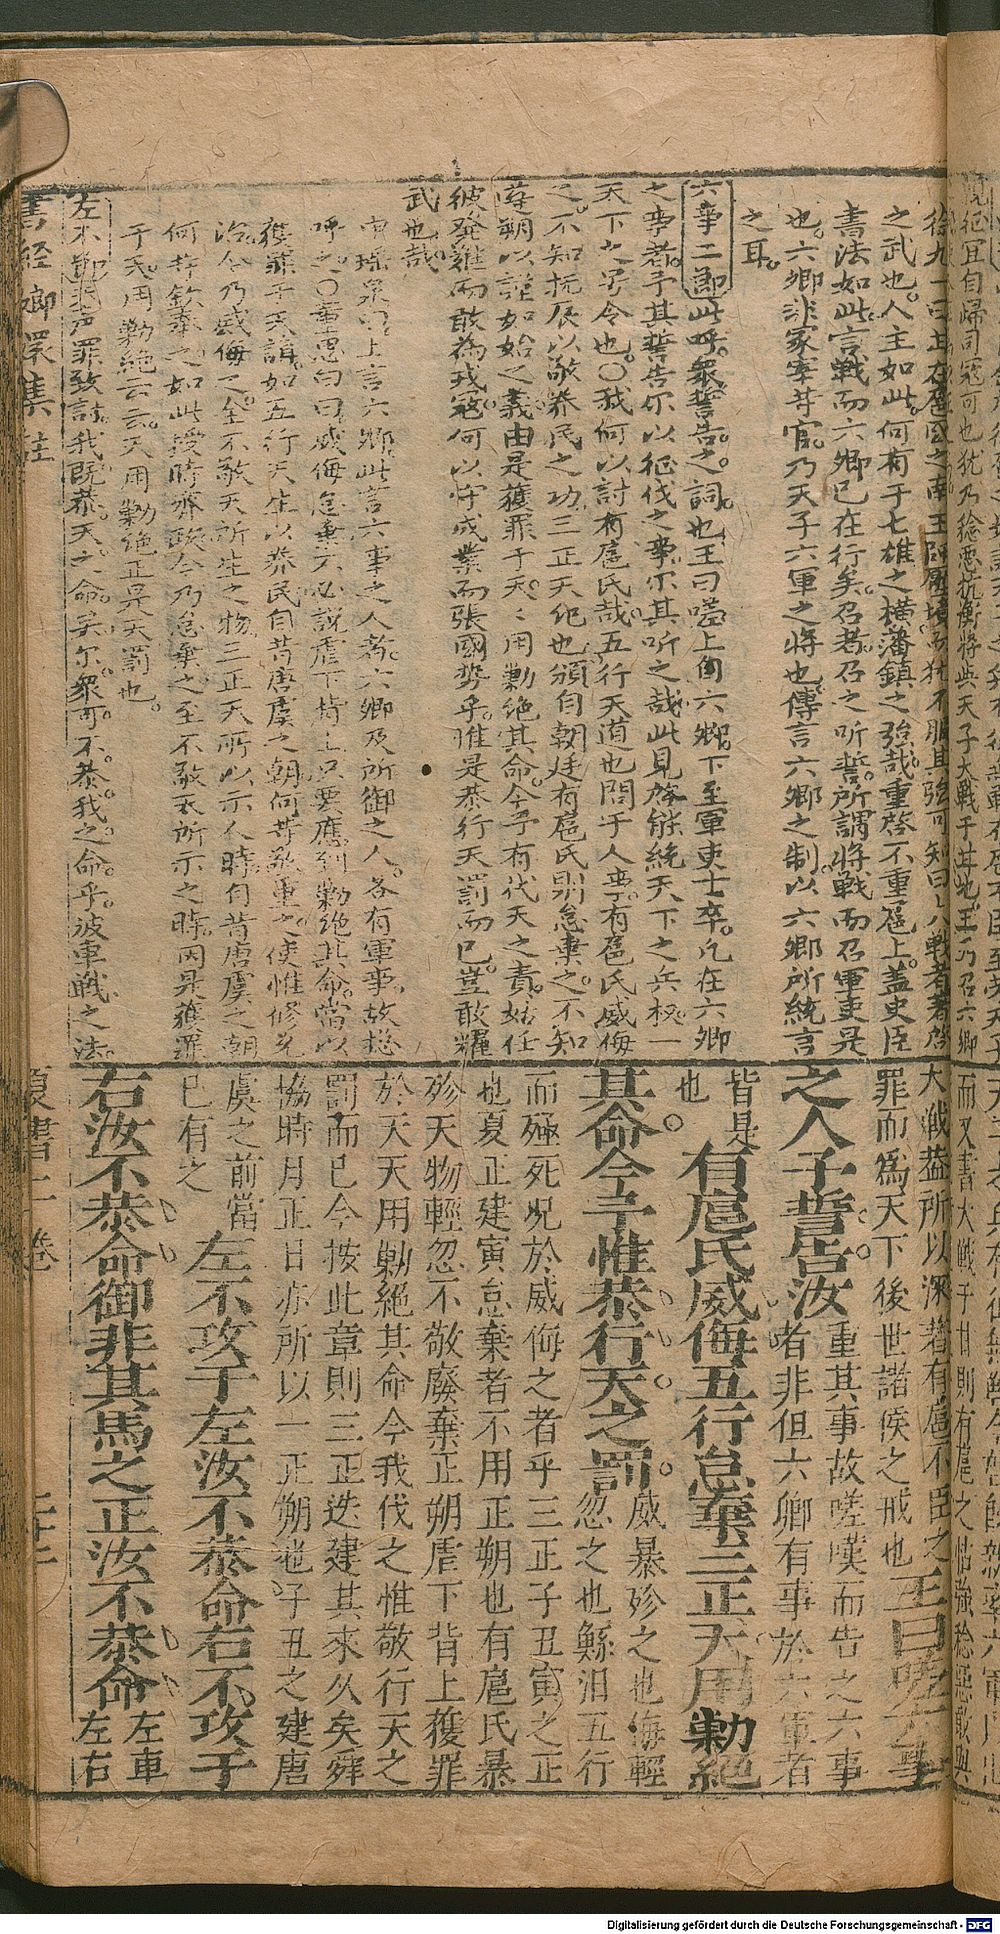 徐九一曰甘在扈國之南王師壓境而犹不服其強可知曰大戰者著啓
之武也人主如此何有于七雄之橫藩鎮之強哉重啓不重扈上盖史臣
書法如此言戰而六卿已在行矣召者召之听誓所謂將戰而召軍吏是
也六卿非冢宰等官乃天子六軍之將也傳言六卿之制以六卿所統言
之耳
六事二節此呼眾誓告之詞也王曰嗟上自六卿下至軍吏士卒凡在六卿
之事者予其誓告尔以征伐之事尔其听之哉此見啓能統天下之兵权一
天下之号令也〇我何以討有扈氏哉五行天道也問于人事有扈氏威侮
之不知抚辰以敬养民之功三正天紀也頒自朝廷有扈氏則怠棄之不知
遵朔以謹如始之義由是獲罪于天天用勦絶其命今予有代天之責姑任
彼發難而敢為戎寇何以守成業而張國势乎惟是恭行天罰而已豈敢耀
武也哉
申瑶泉曰上言六卿此言六事之人者六卿及所御之人各有軍事故总
呼之〇童思曰曰威侮怠棄不必説虐下背上只要應到勦绝其命當以
獲罪于天講如五行天生以养民自昔唐虞之朝何等敬重之使惟修允
治今乃威侮之全不敬天所生之物三正天所以示人時自昔唐虞之朝
何等欽奉之如此授時齊政今乃怠棄之至不敬天所示之時因是獲罪
于天用勦絶云云天用勦绝正見天罰也
左不節我声罪致討我既恭天之命矣尔眾可不恭我之命乎彼車戰之法
書經嫏嬛集註
大戰葢所以深著有扈不臣之
罪而爲天下後世諸侯之戒也王曰嗟六事
之人予誓告汝重其事故嗟嘆而告之六事
者非但六卿有事於六軍者
皆是
也有扈氏威侮五行怠棄三正天用勦絕
其命今予惟恭行天之罰威暴殄之也侮輕
忽之也鯀汨五行
而殛死況於威侮之者乎三正子丑寅之正
也夏正建寅怠棄者不用正朔也有扈氏暴
殄天物輕忽不敬廢棄正朔虐下背上獲罪
於天天用勦絕其命今我伐之惟敬行天之
罰而已今按此章則三正迭建其來久矣舜
協時月正日亦所以一正朔也子丑之建唐
虞之前當
已有之左不攻于左汝不恭命右不攻于
右汝不恭命御非其馬之正汝不恭命左車
左右
夏書二卷
Digitalisierung gefördert durch die Deutsche Forschungsgemeinschaft - DFG